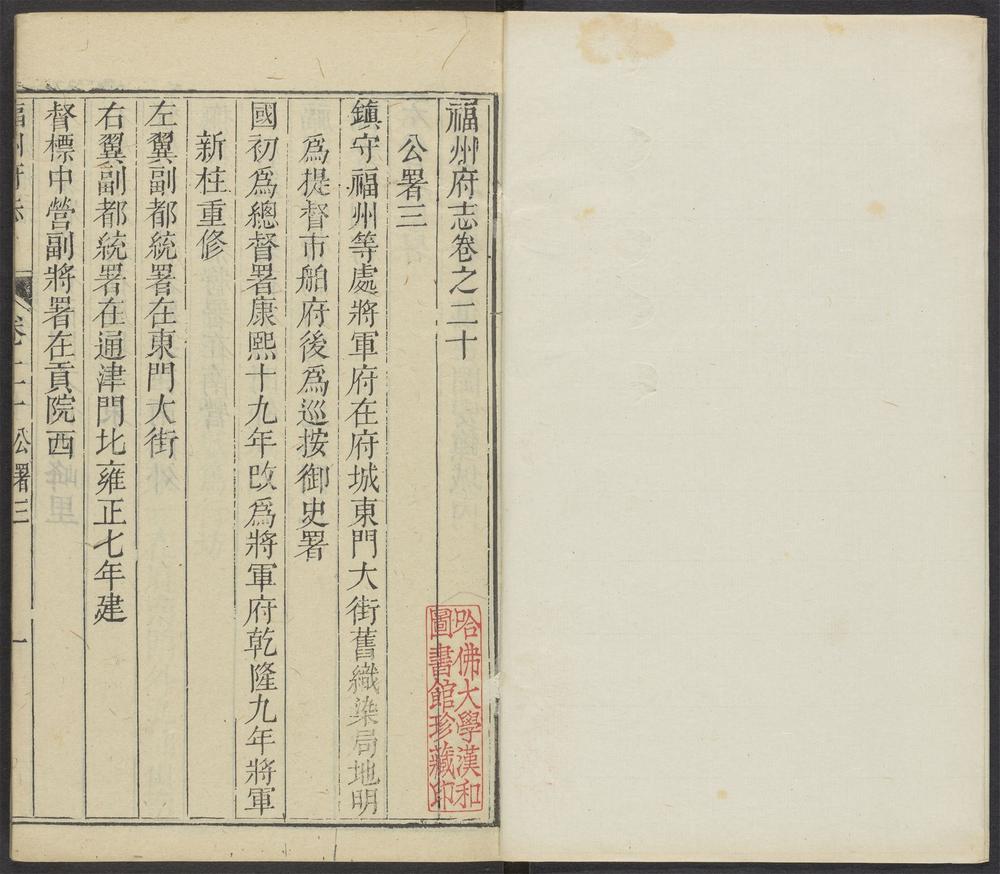 福州府志卷之二十
公署三
鎮守福州等處將軍府在府城東門大街舊織染局地明
爲提督市舶府後爲巡按御史署
國初爲總督署康熙十九年改爲將軍府乾隆九年將軍
新柱重修
左翼副都統署在東門大街
右翼副都統署在通津門北雍正七年建
督標中營副將署在貢院西
福州府志
卷二十
公署三
一
哈佛大學漢和
圖書館珍藏印